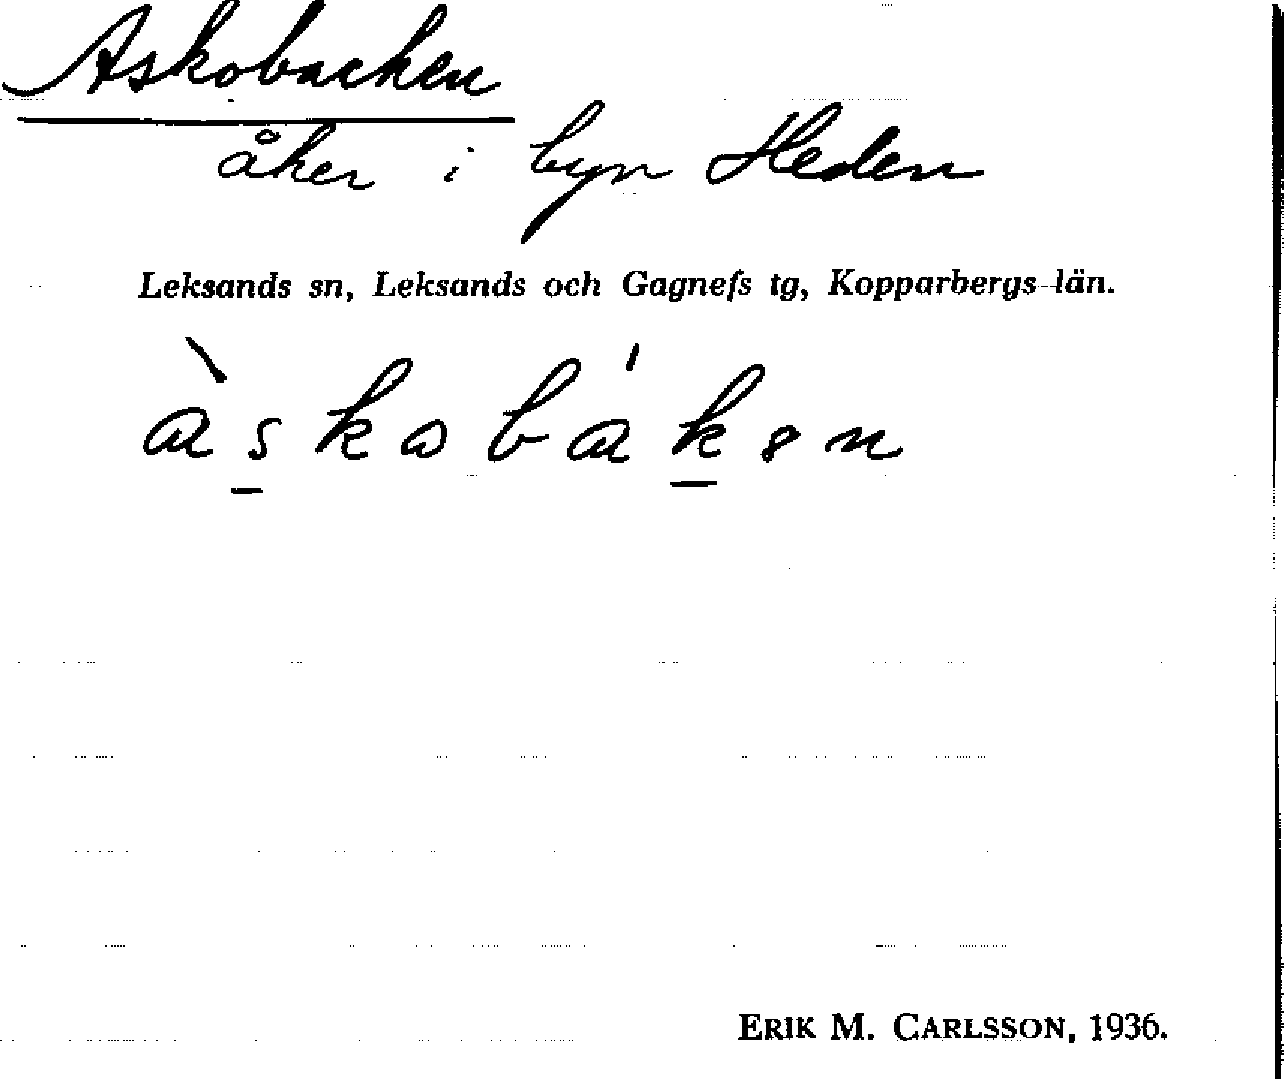 Askobacken
åker i byn Heden
Leksands sn, Leksands och Gagnefs tg, Kopparbergs län.
às̲kobák̲ən
ERIK M. CARLSSON, 1936.